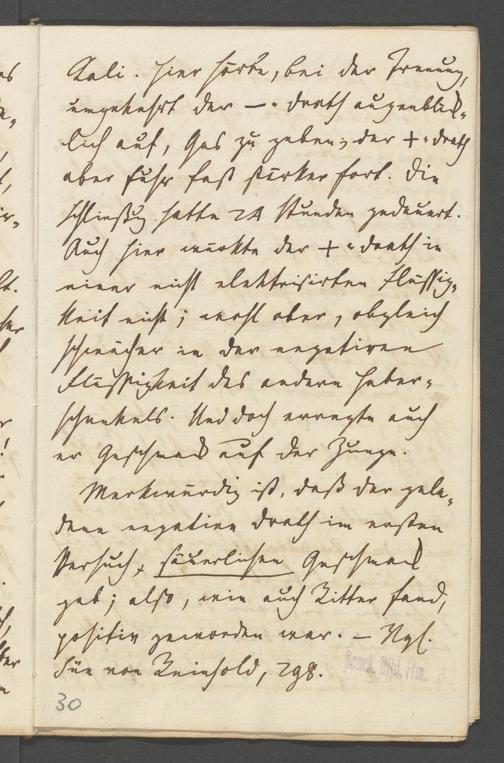 Kali. Hier hörte, bei der Trennung,
umgekehrt der –=drath augenblick=
lich auf, Gas zu geben; der +=drath
aber fuhr fast stärker fort. Die
Schließg. hatte 24 Stunden gedauert.
Auch hier wirkte der +=drath in
einer nicht elektrisirten Flüssig=
keit nicht; wohl aber, obgleich
schwächer in der negativen
Flüssigkeit des andern Heber=
schenkels. Und doch erregte auch
er Geschmack auf der Zunge.
Merkwürdig ist, daß der gela=
dene negative Drath im ersten
Versuch, säuerlichen Geschmack
gab; also, wie auch Ritter fand,
positiv geworden war. – Vgl.
von Reinhold, 298.
30